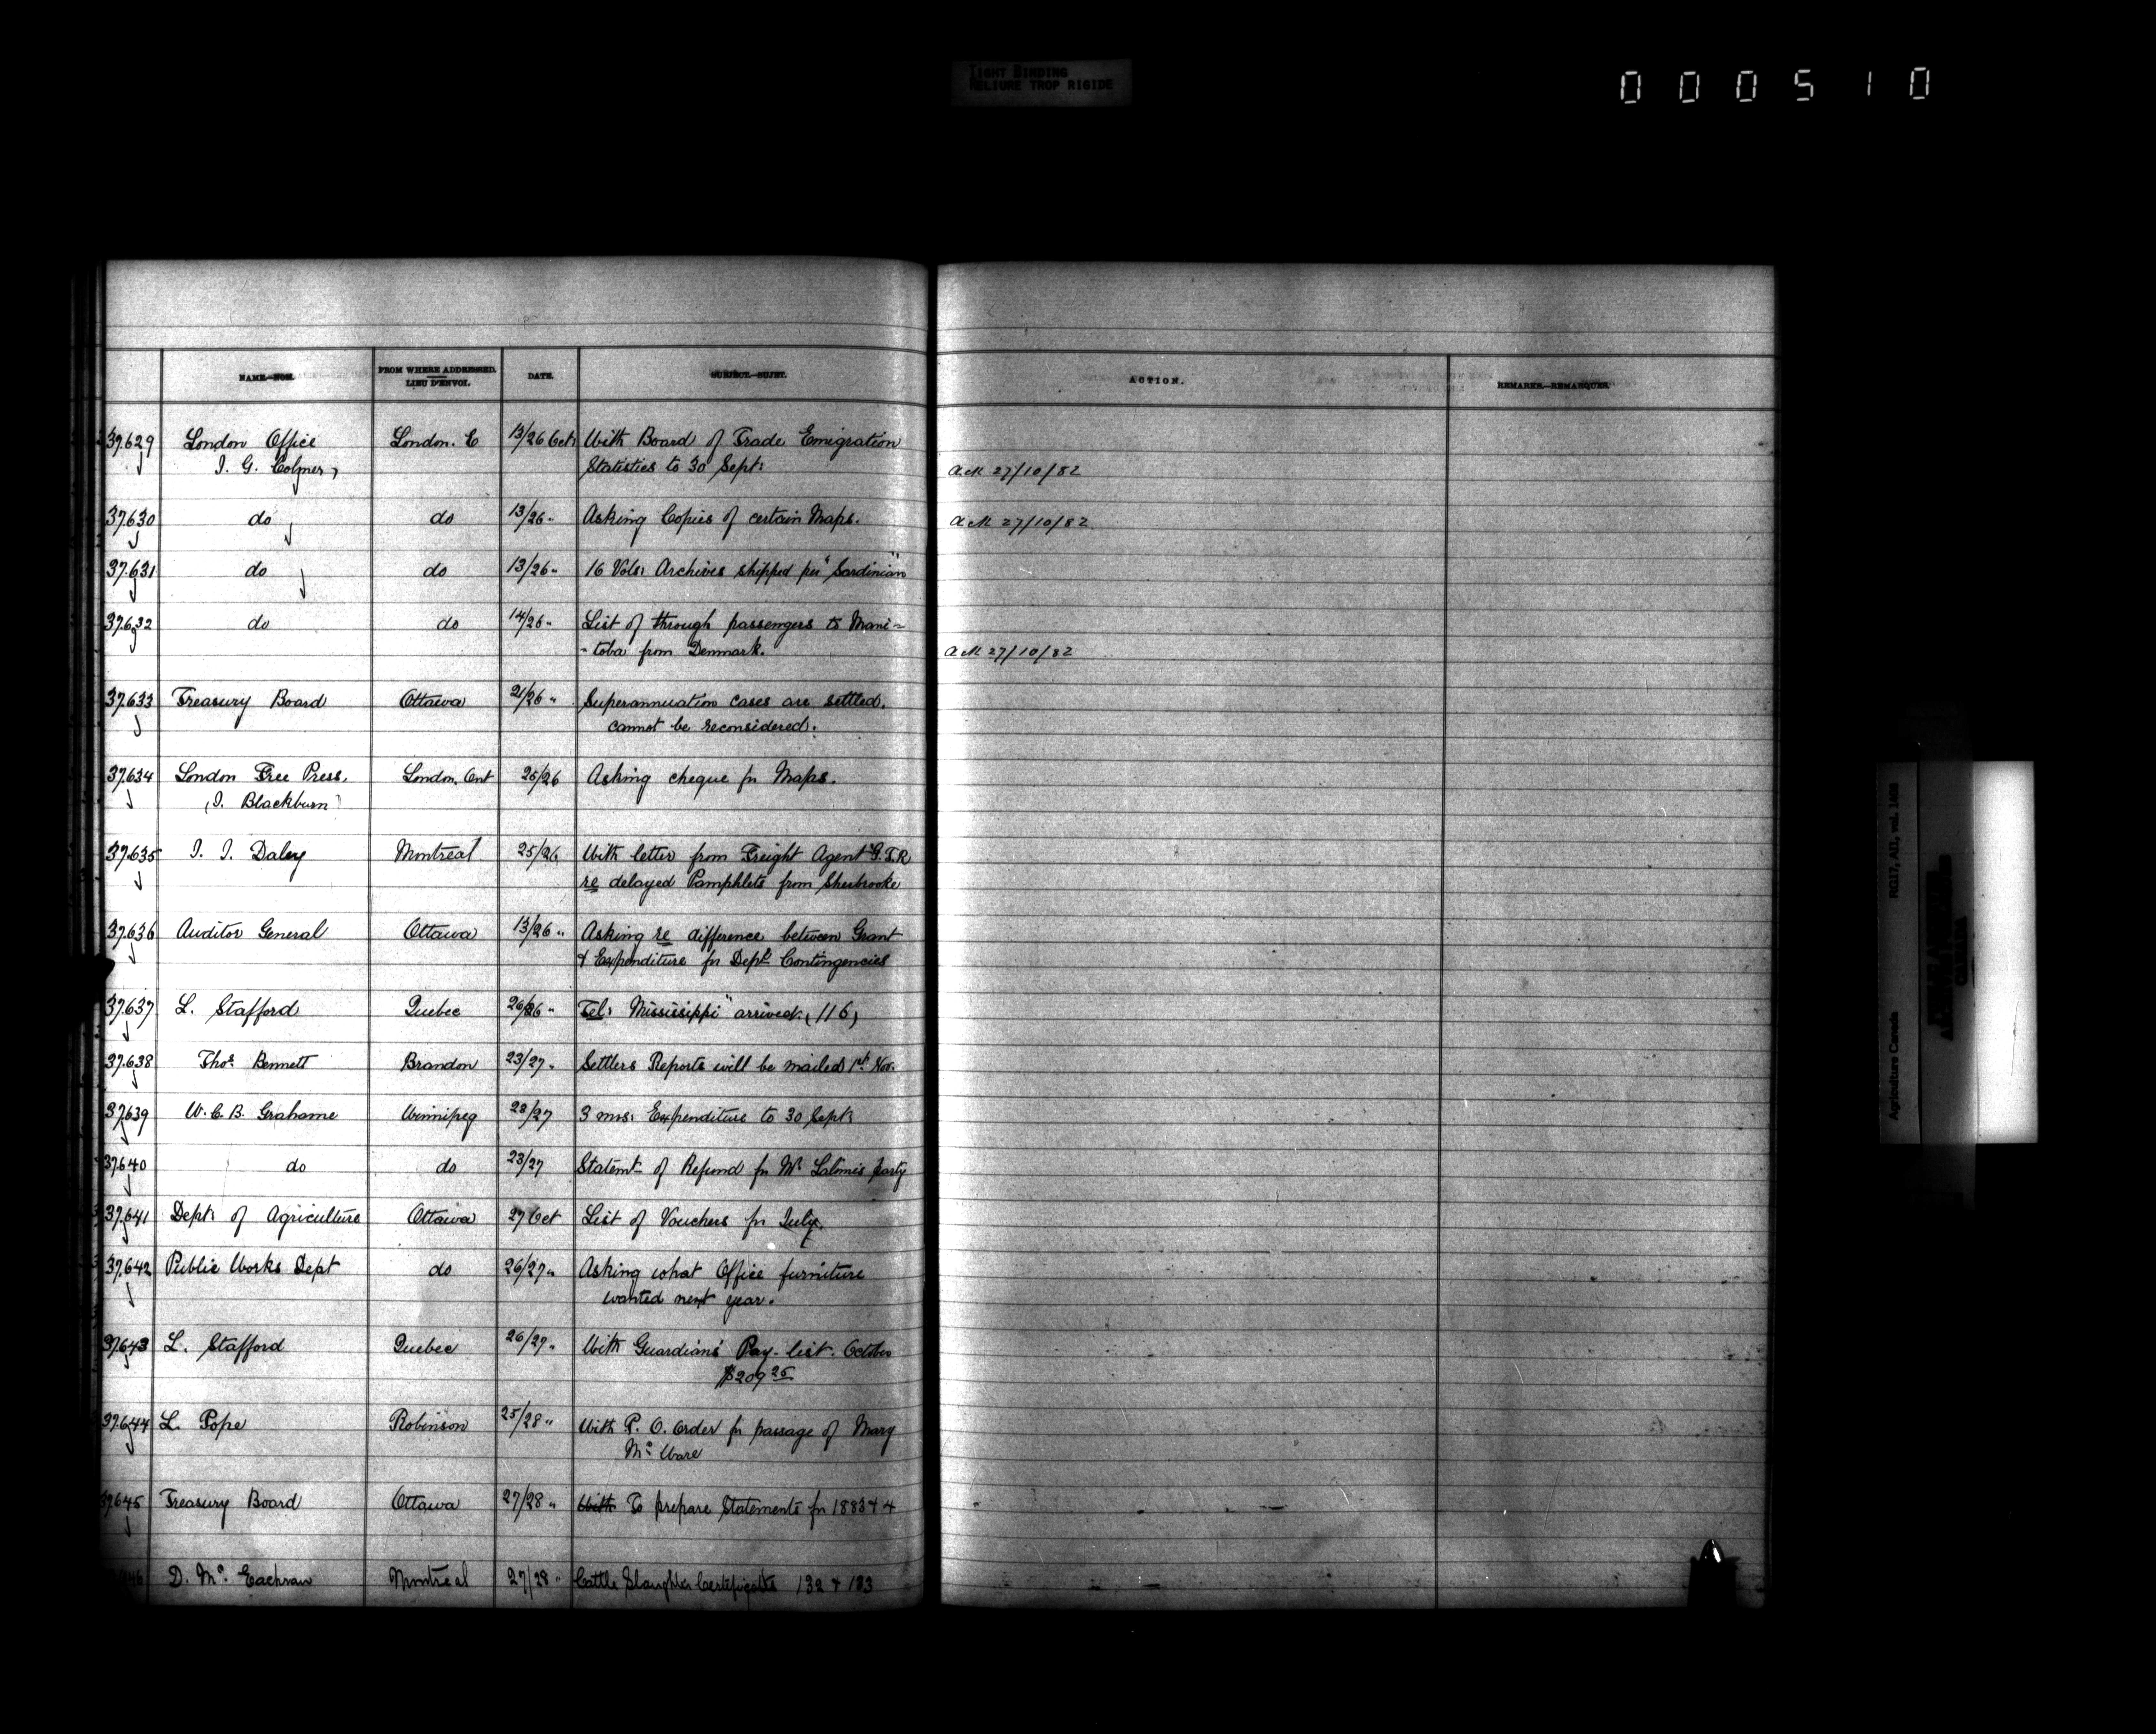 TIGHT BINDING
RELIURE TROP RIGIDE
000510
NAME.—NOM. FROM WHERE ADDRESSED. LIEU D'ENVOI. DATE. SUBJECT.—SUJET. ACTION. REMARKS.—REMARQUES.
37.629 London Office London. E 13/26 Oct: With Board of Trade Emigration
J. G. Colmer, Statistics to 30 Sept: 27/10/82
37.630 do do 13/26 " Asking Copies of certain Maps. 27/10/82
37.631 do do 13/26 " 16 Vols: Archives shipped per "Sardinian"
37.632 do do 14/26 " List of through passengers to Mani-
-toba from Denmark. 27/10/82
37.633 Treasury Board Ottawa 21/26 " Superannuation cases are settled.
cannot be reconsidered.
37.634 London Free Press, London, Ont 25/26 Asking cheque for Maps.
(J. Blackburn)
37.635 J. J. Daley Montreal 25/26 With letter from Freight Agent G.T.R
re delayed Pamphlets from Sherbrooke
37.636 Auditor General Ottawa 13/26 " Asking re difference between Grant
& Expenditure for Dept. Contingencies
37.637 L. Stafford Quebec 26/26 " Tel: Mississippi" arrived. (116)
37.638 Thos. Bennett Brandon 23/27 " Settlers Reports will be mailed 1st Nov.
37.639 W. C. B. Grahame Winnipeg 23/27 3 mos: Expenditure to 30 Sept:
37.640 do do 23/27 Statemt of Refund for Mr party
37.641 Dept: of Agriculture Ottawa 27 Oct List of Vouchers for July.
37.642 Public Works Dept do 26/27 " Asking what Office furniture
wanted next year.
37.643 L. Stafford Quebec 26/27 " With Guardians' Pay-list. October
$209 25
37.644 L. Pope Robinson 25/28 " With P. O. Order for passage of Mary
Mc Ware
37.645 Treasury Board Ottawa 27/28 " With To prepare Statements for 1883 & 4
D. Mc. Eachran Montreal 27/28 " Cattle Slaughter Certificates 132 & 133
Agriculture Canada RG17, AII, vol. 1408